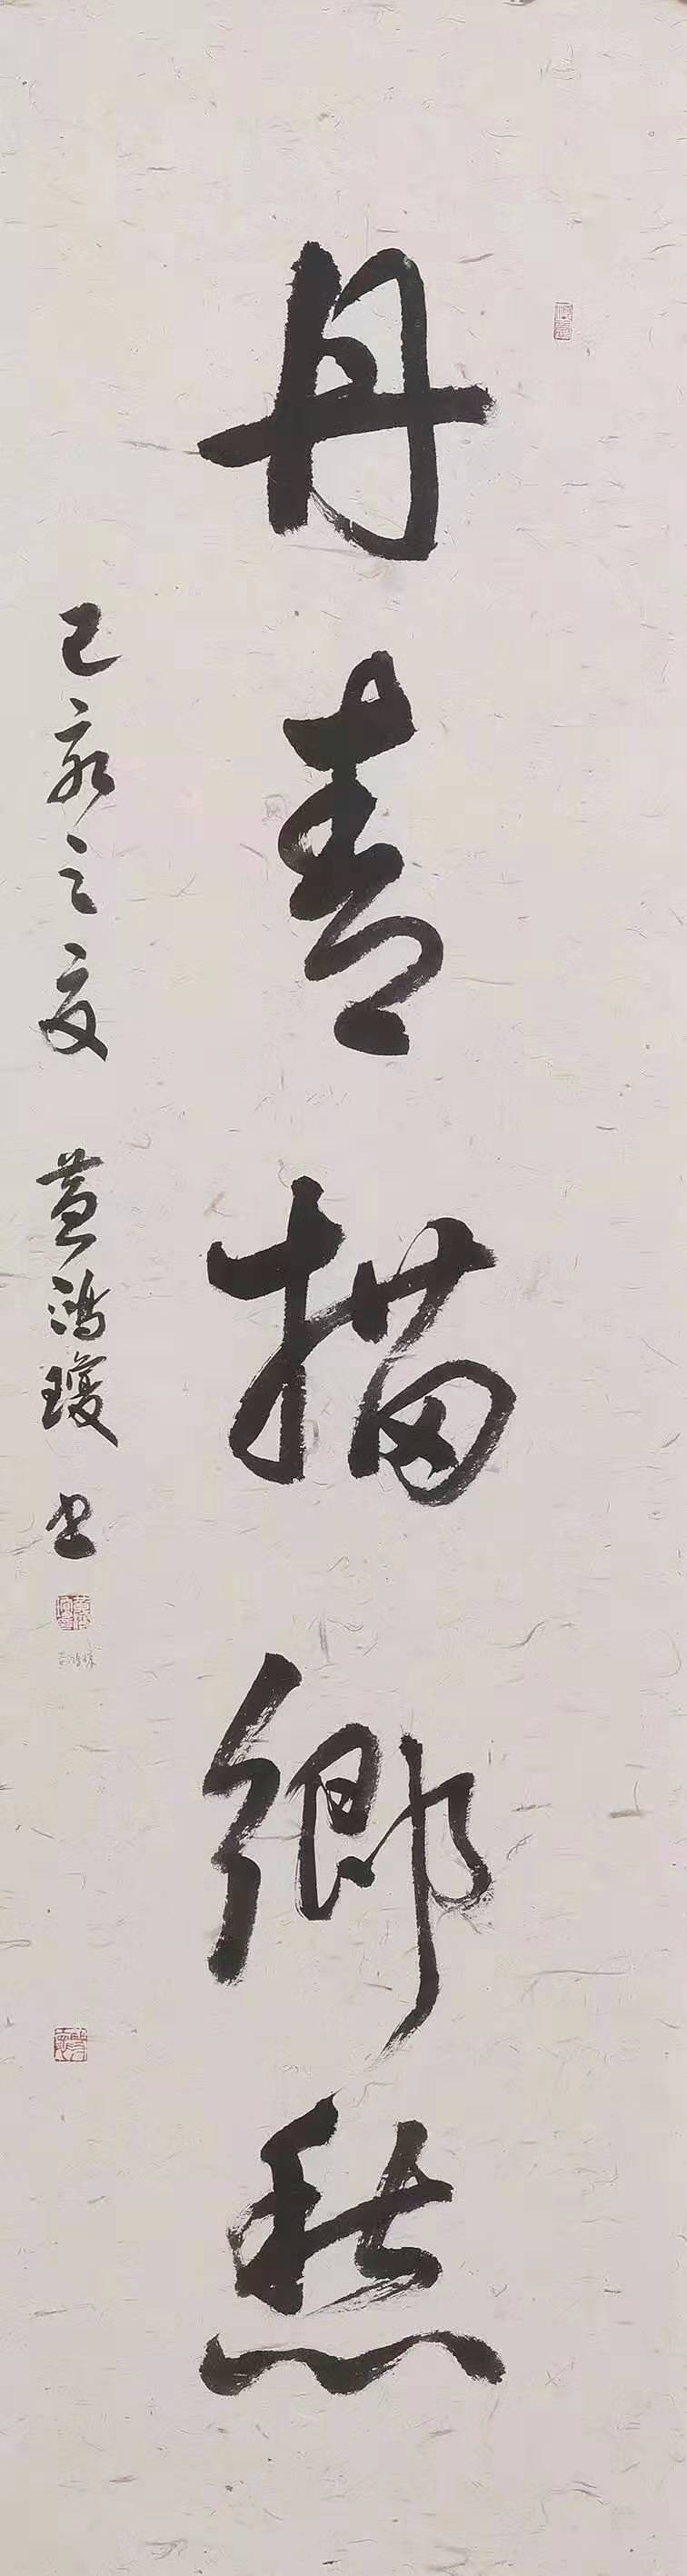 丹青描鄉愁
己亥之夏 黄鴻瓊書